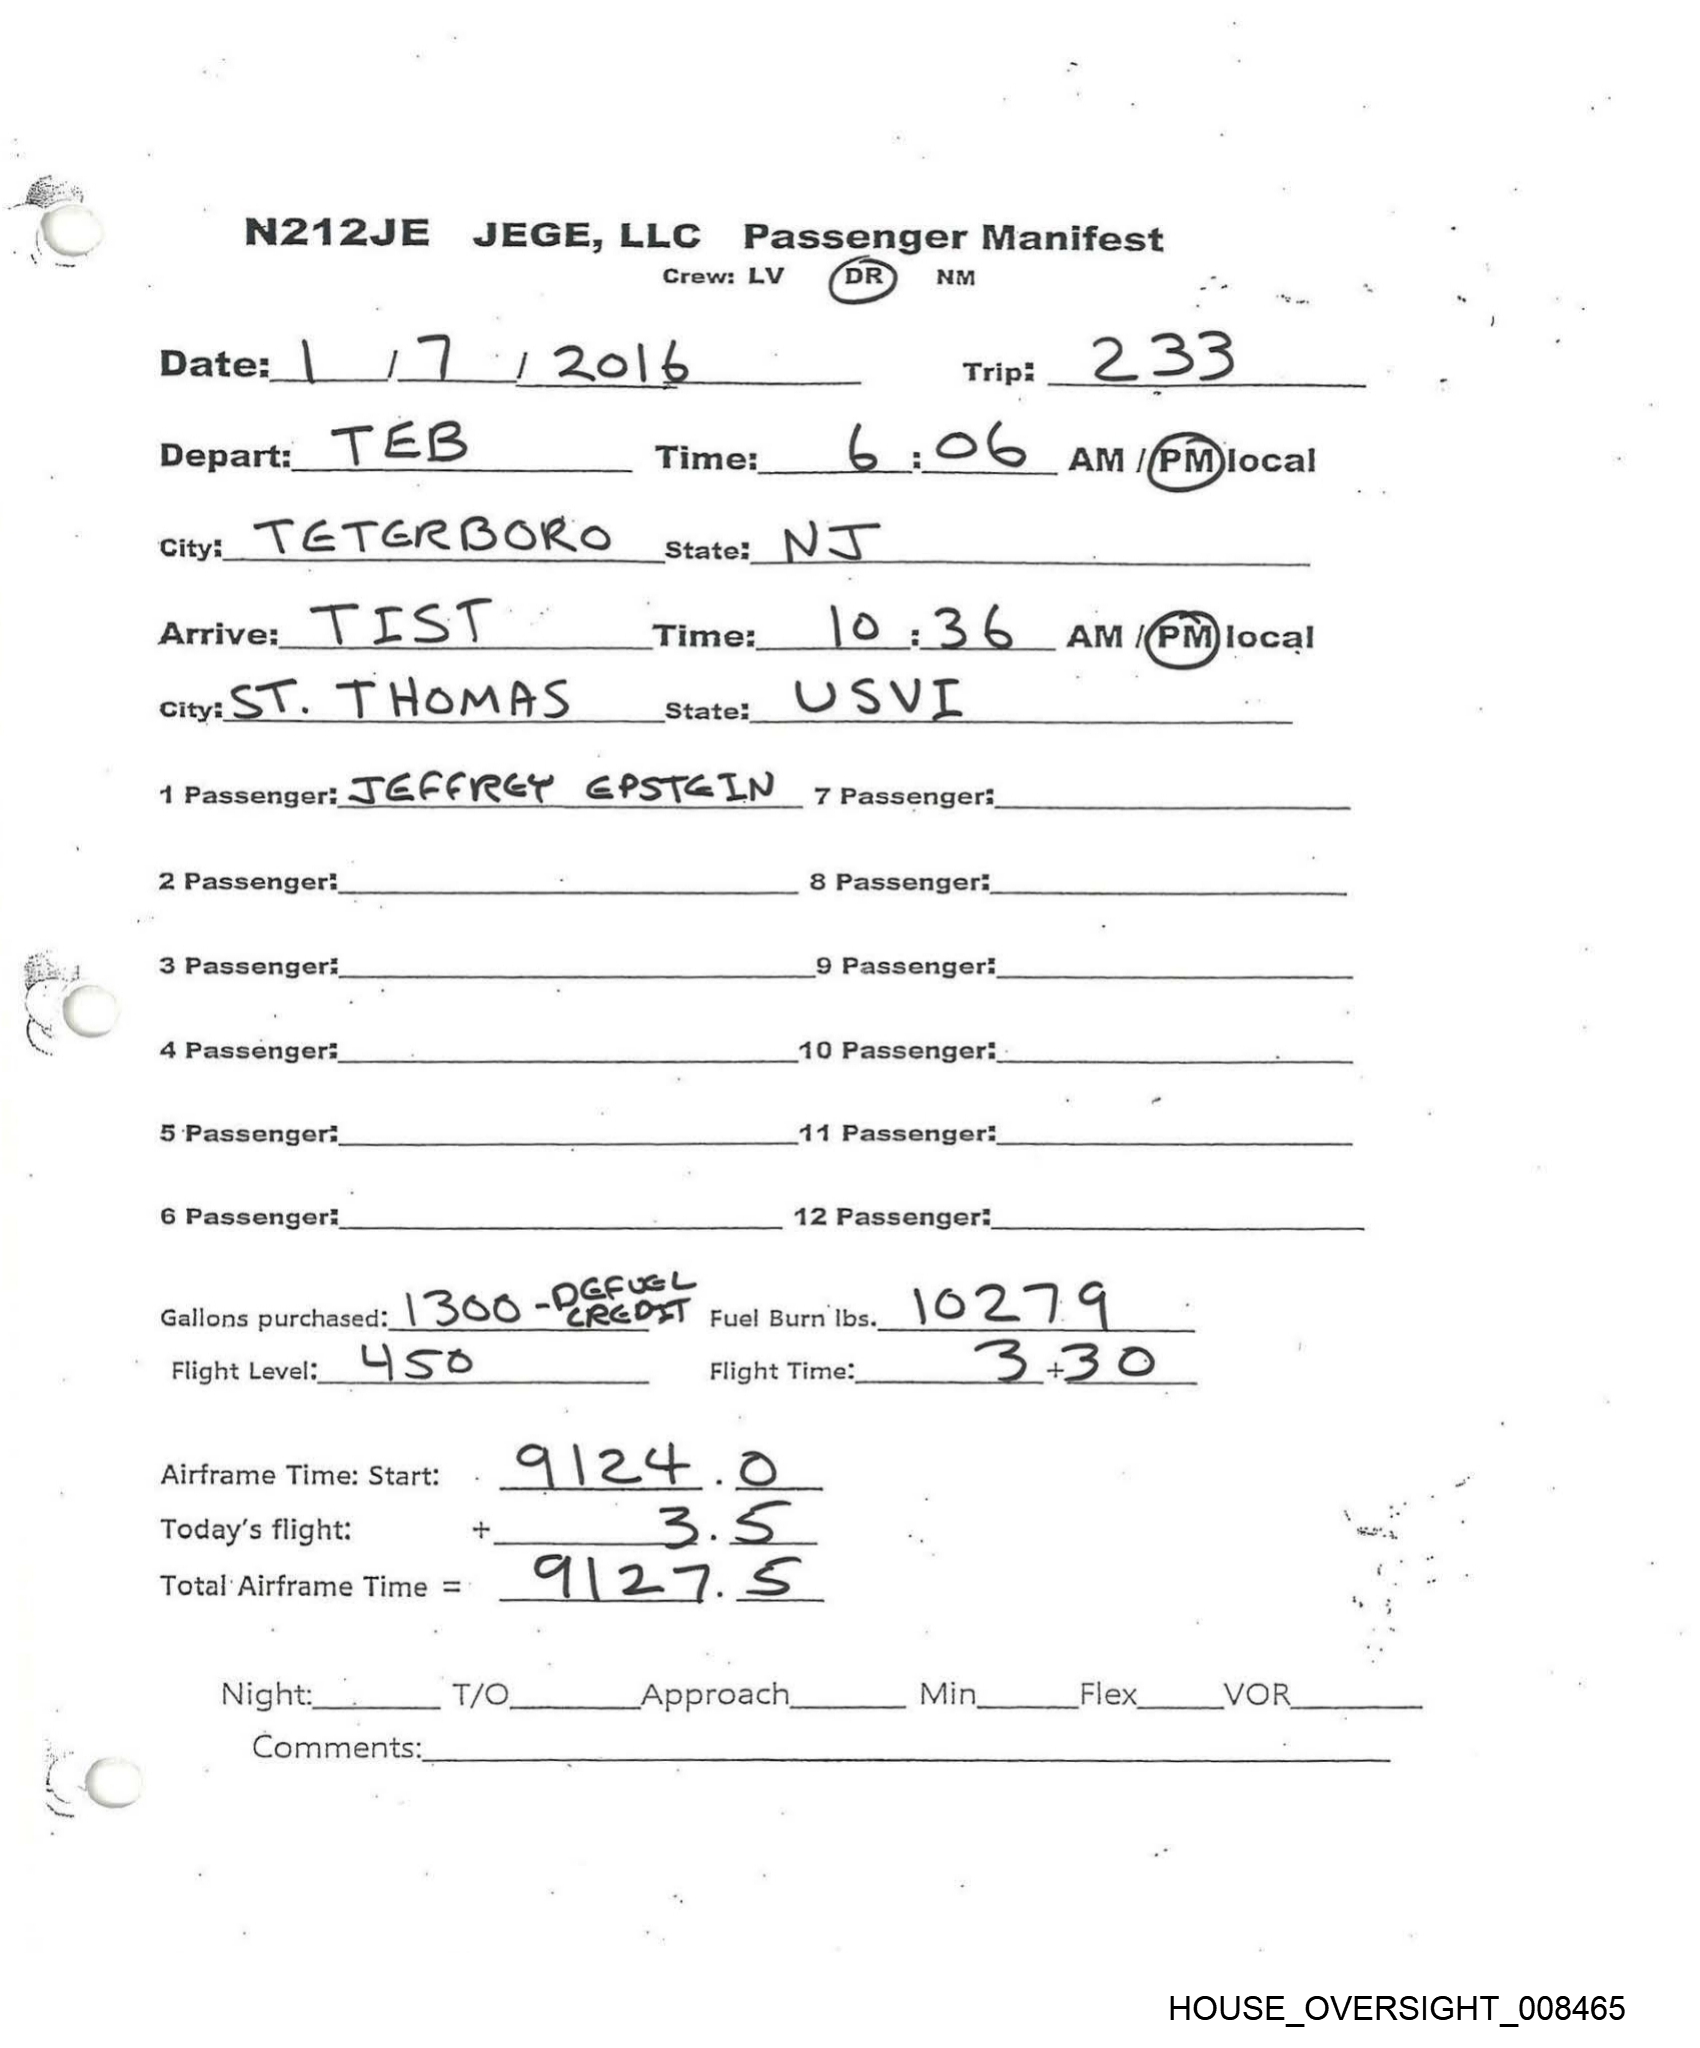 N212JE JEGE, LLC Passenger Manifest
Crew: LV DR NM
Date: 1 / 7 / 2016 Trip: 233
Depart: TEB Time: 6 : 06 AM / PM local
City: TETERBORO State: NJ
Arrive: TIST Time: 10 : 36 AM / PM local
City: ST. THOMAS State: USVI
1 Passenger: JEFFREY EPSTEIN 7 Passenger:
2 Passenger: 8 Passenger:
3 Passenger: 9 Passenger:
4 Passenger: 10 Passenger:
5 Passenger: 11 Passenger:
6 Passenger: 12 Passenger:
Gallons purchased: 1300 - DEFUEL CREDIT Fuel Burn lbs. 10279
Flight Level: 450 Flight Time: 3 + 30
Airframe Time: Start: 9124 . 0
Today's flight: + 3 . 5
Total Airframe Time = 9127 . 5
Night: T/O Approach Min Flex VOR
Comments:
HOUSE_OVERSIGHT_008465